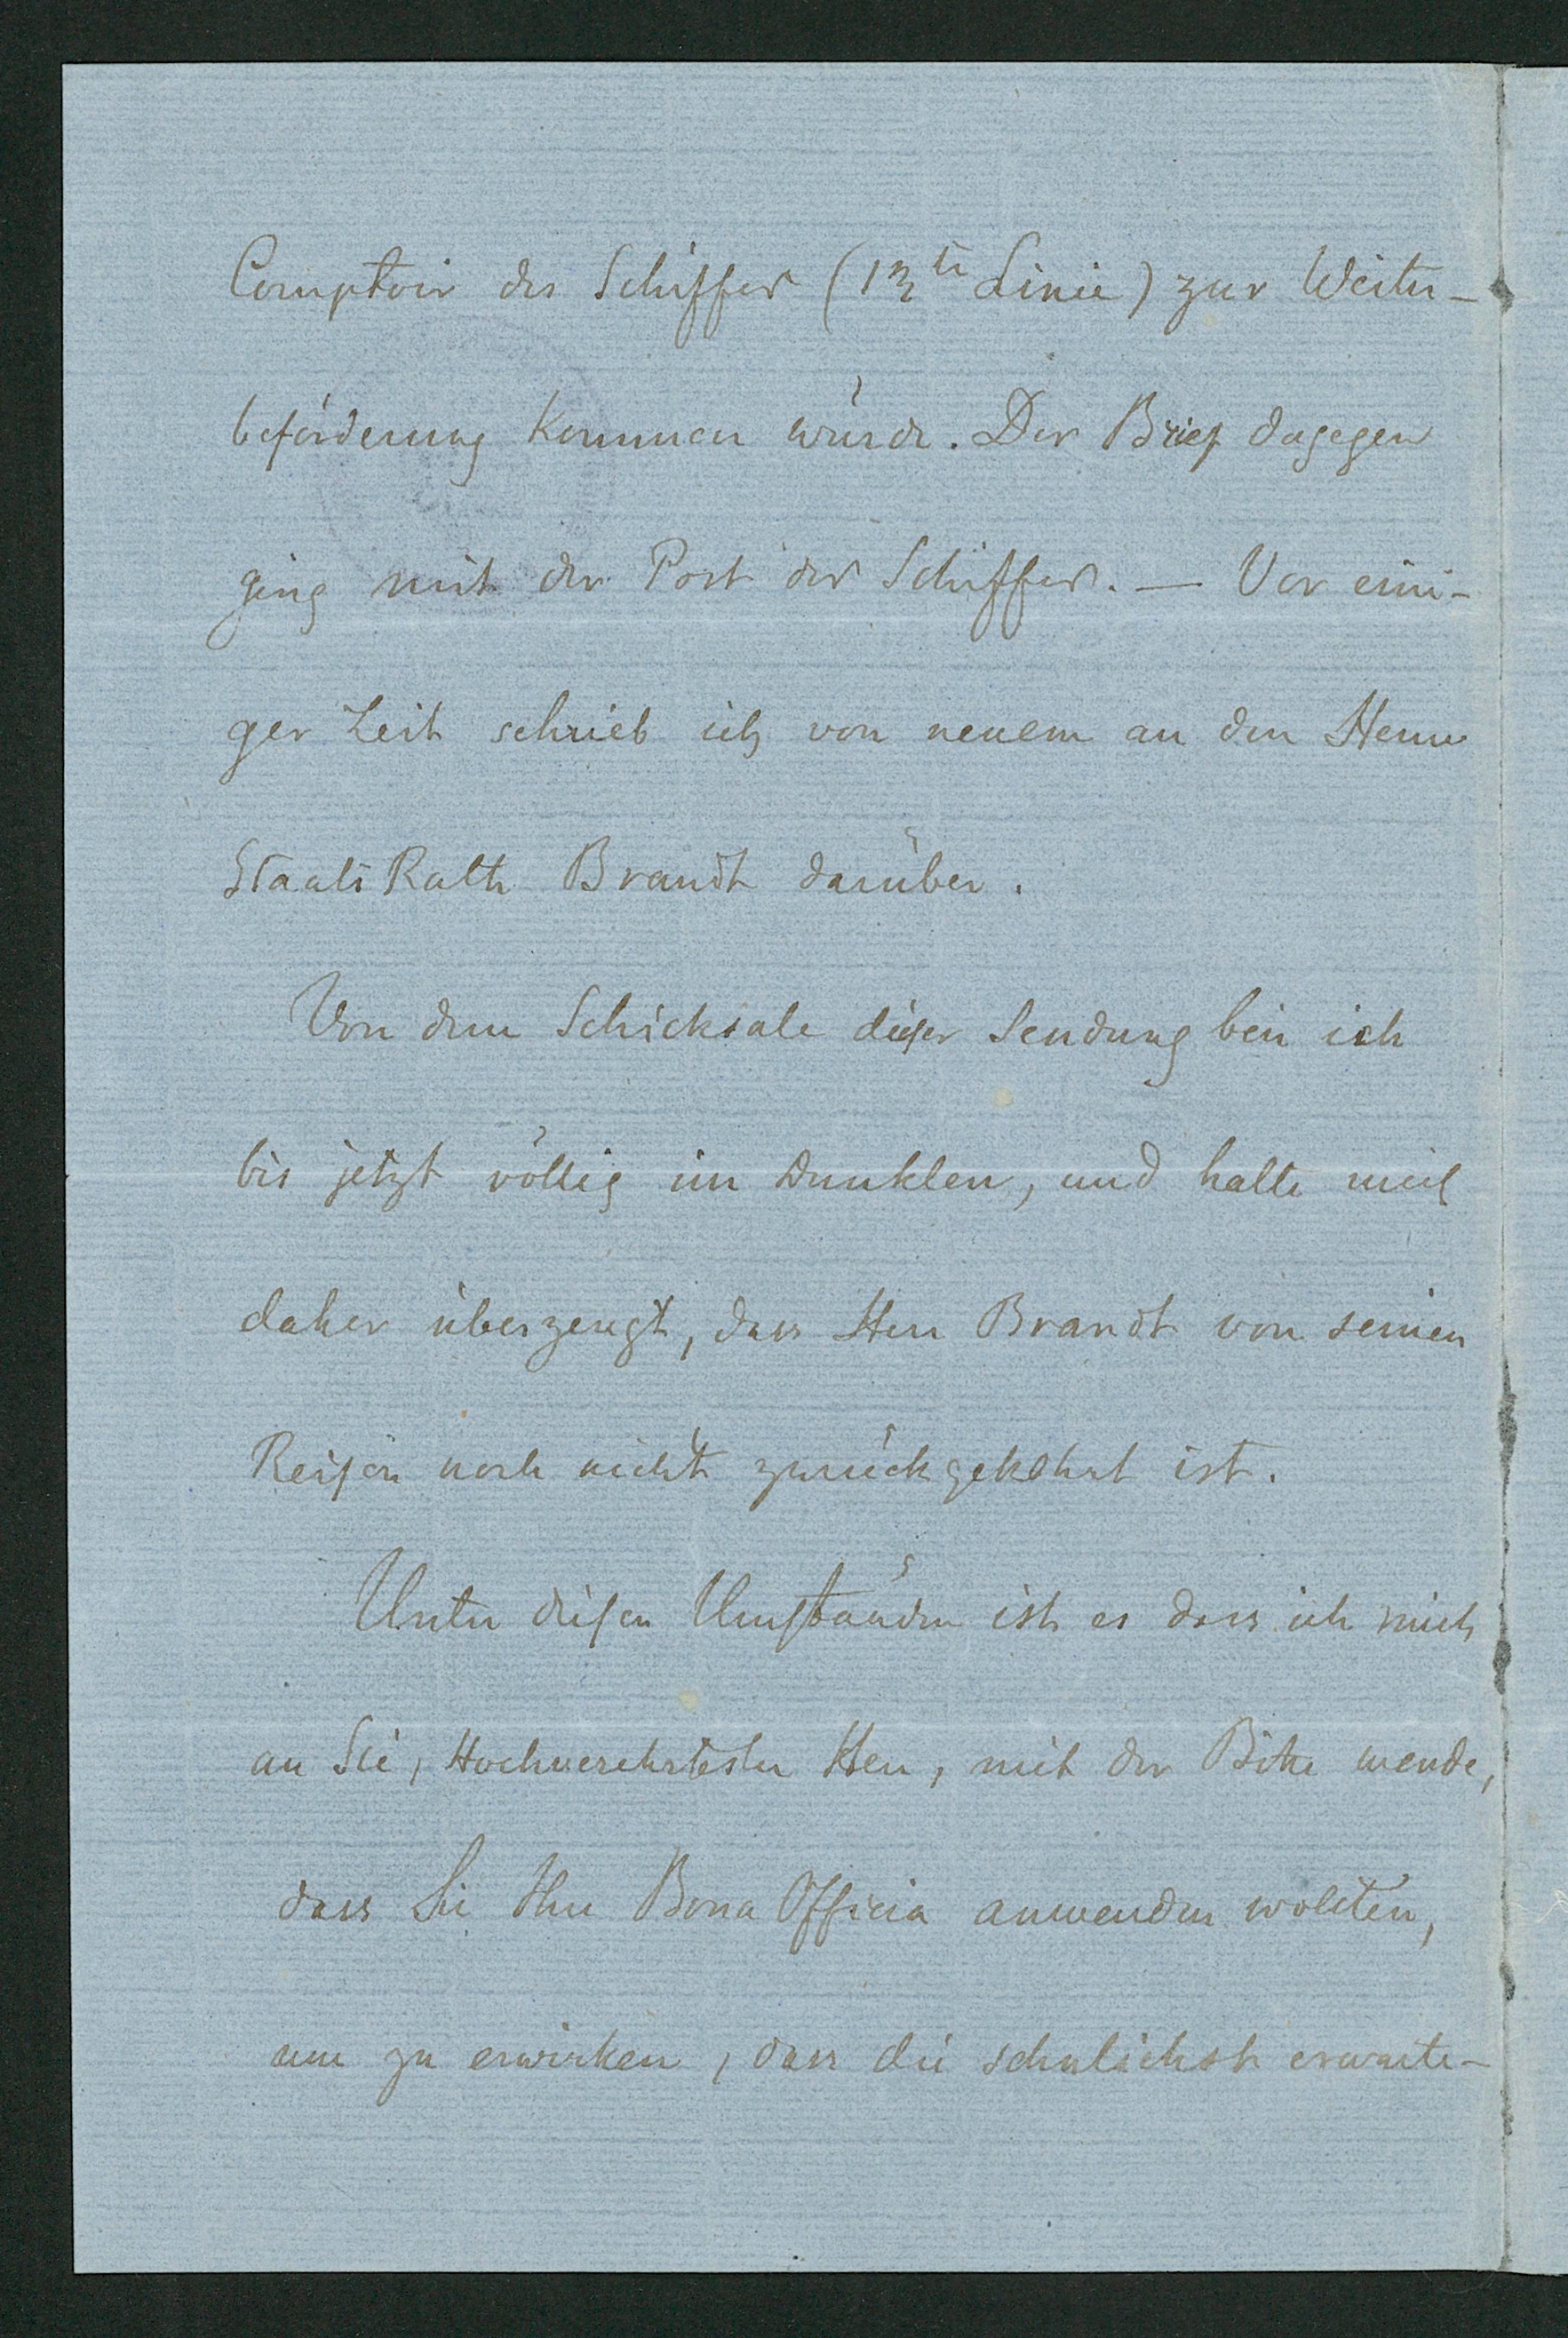 Comptoir des Schiffer (13te Linie) zur Weiter-
beförderung kommen würde. Der Brief dagegen
ging mit der Post der Schiffer. — Vor eini-
ger Zeit schrieb ich von neuem an den Herrn
StaatsRath Brandt darüber.
Von dem Schicksale dieser Sendung bin ich
bis jetzt völlig im Dunklen, und halte mich
daher überzeugt, dass Herr Brandt von seinen
Reisen noch nicht zurückgekehrt ist.
Unter diesen Umständen ist es dass ich mich
an Sie, Hochverehrtester Herr, mit der Bitte wende,
dass Sie Ihre Bona Officia anwenden wollten,
um zu erwirken, dass die sehnlichst erwarte-